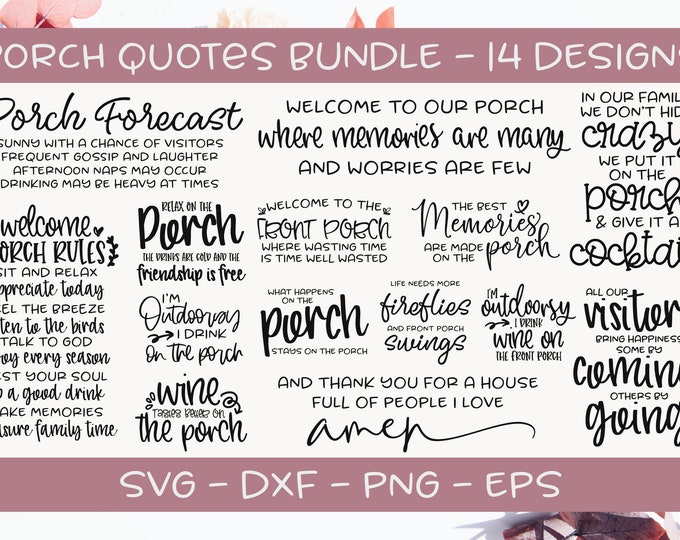 PORCH QUOTES BUNDLE – 14 DESIGNS
Porch Forecast
SUNNY WITH A CHANCE OF VISITORS
FREQUENT GOSSIP AND LAUGHTER
AFTERNOON NAPS MAY OCCUR
DRINKING MAY BE HEAVY AT TIMES
WELCOME TO OUR PORCH
where memories are many
AND WORRIES ARE FEW
IN OUR FAMILY
WE DON'T HIDE
crazy
WE PUT IT
ON THE
porch
& GIVE IT A
cocktail
welcome
PORCH RULES
SIT AND RELAX
appreciate today
FEEL THE BREEZE
listen to the birds
TALK TO GOD
enjoy every season
REST YOUR SOUL
sip a good drink
MAKE MEMORIES
treasure family time
RELAX ON THE
Porch
THE DRINKS ARE COLD AND THE
friendship is free
WELCOME TO THE
FRONT PORCH
WHERE WASTING TIME
IS TIME WELL WASTED
THE BEST
Memories
ARE MADE
ON THE porch
I'M
Outdoorsy
I DRINK
on the porch
WHAT HAPPENS
ON THE
porch
STAYS ON THE PORCH
LIFE NEEDS MORE
fireflies
AND FRONT PORCH
swings
I'M
outdoorsy
I DRINK
wine on
THE FRONT PORCH
ALL OUR
visitors
BRING HAPPINESS
SOME BY
coming
OTHERS BY
going
wine
TASTES BETTER ON
the porch
AND THANK YOU FOR A HOUSE
FULL OF PEOPLE I LOVE
amen
SVG – DXF – PNG – EPS